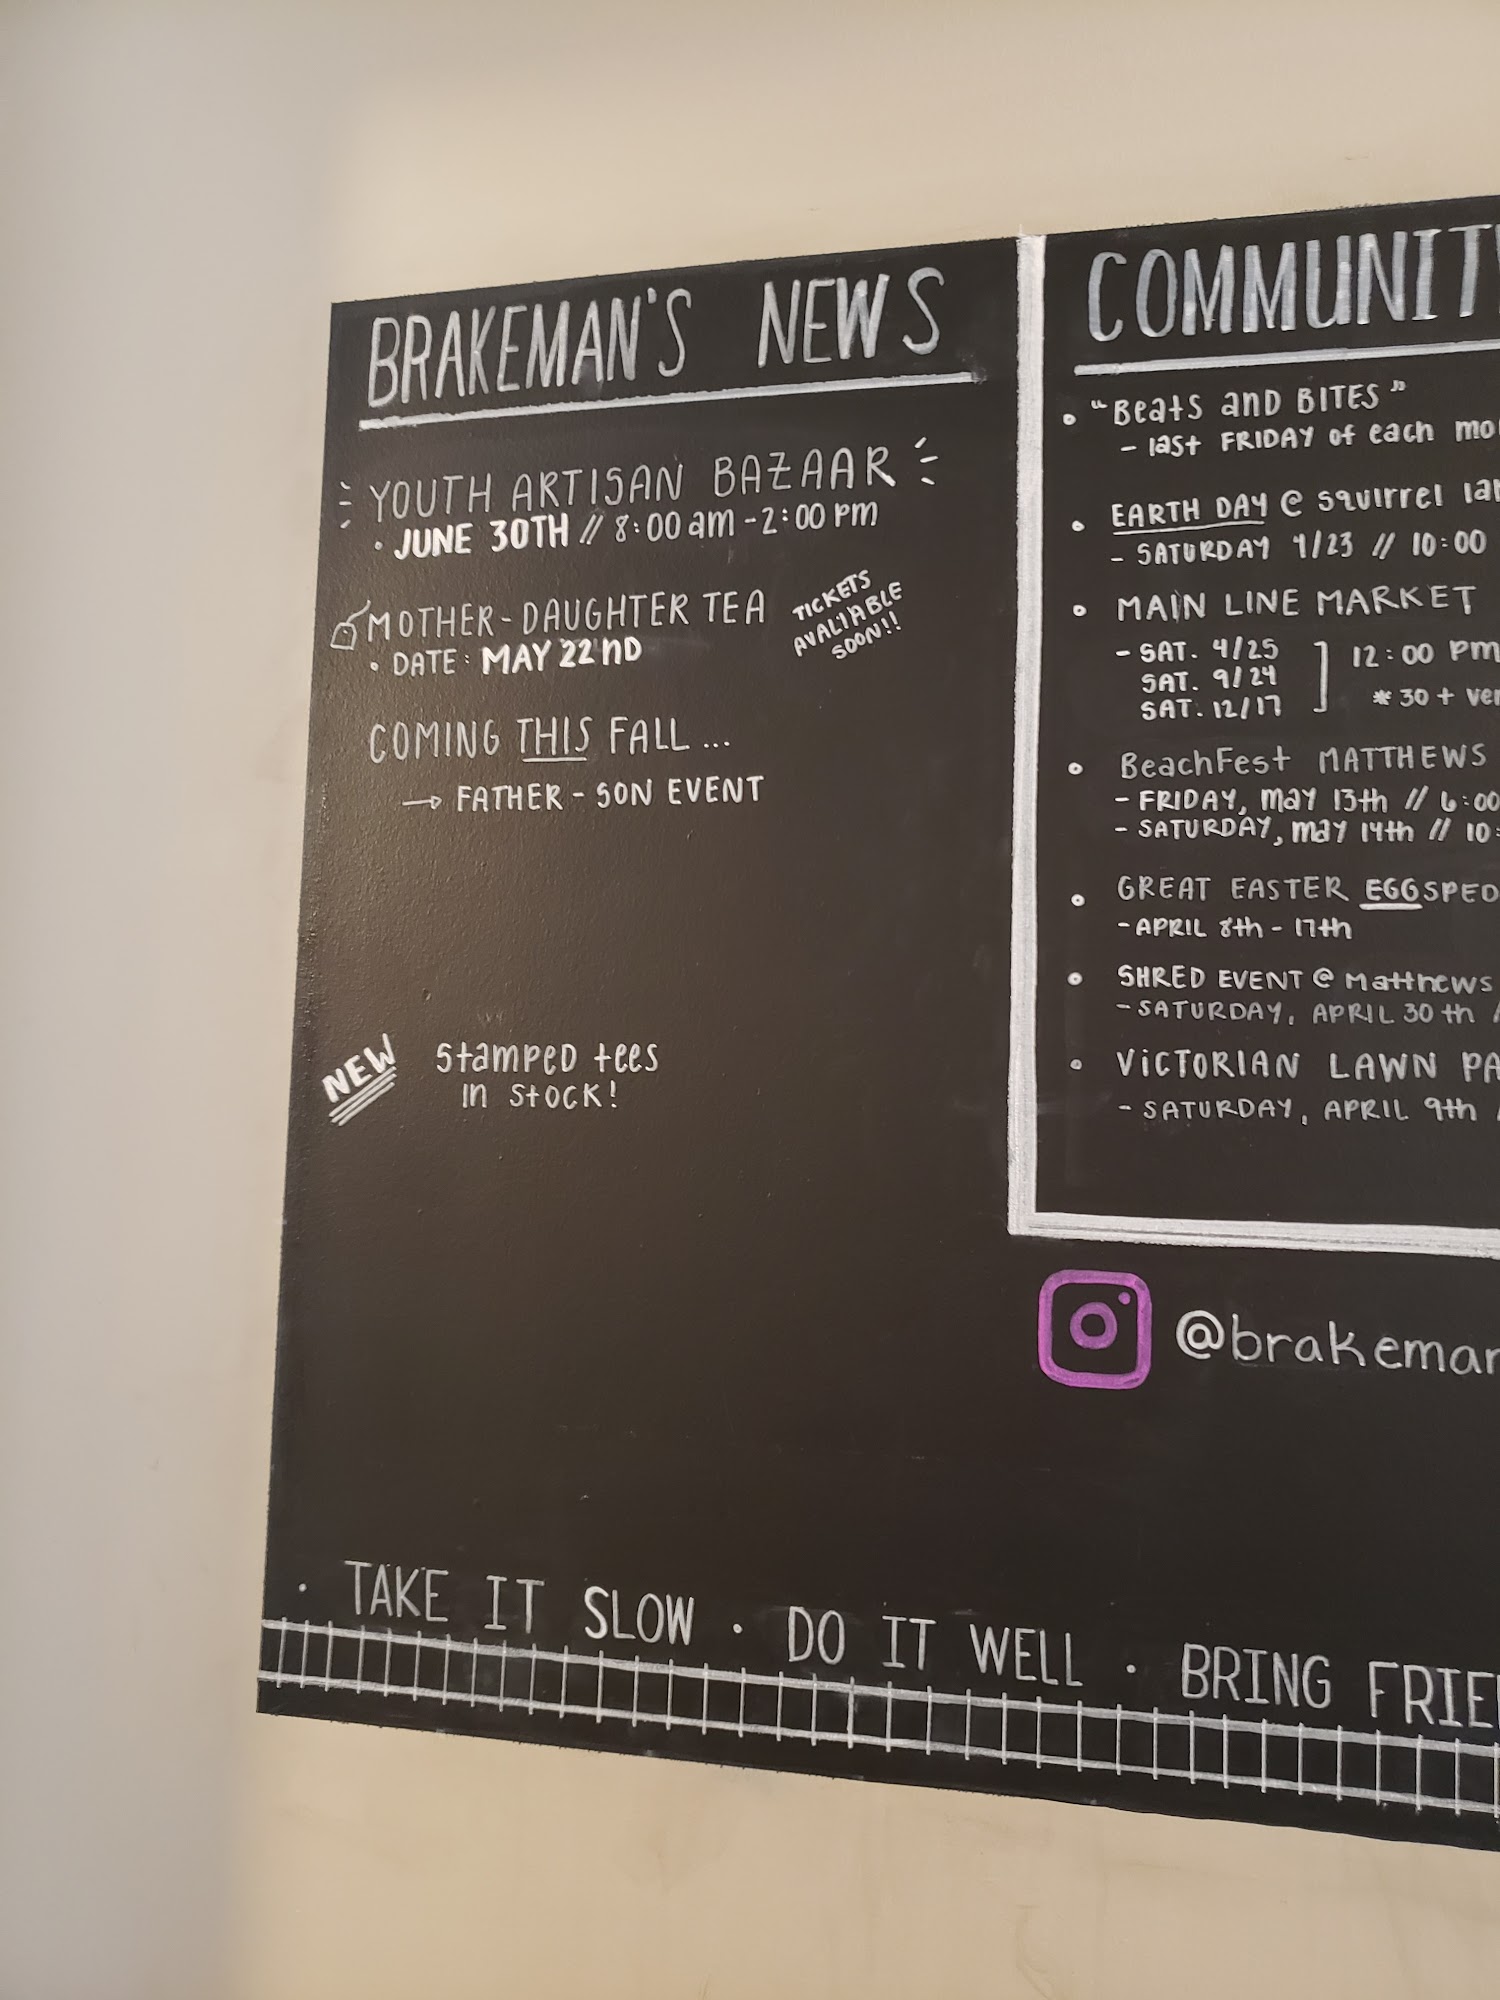 BRAKEMAN'S NEWS
YOUTH ARTISAN BAZAAR
• JUNE 30TH // 8:00 am - 2:00 PM
MOTHER-DAUGHTER TEA
• DATE: MAY 22ND
TICKETS
AVALIABLE
SOON!!
COMING THIS FALL...
→ FATHER - SON EVENT
NEW
Stamped tees
in stock!
COMMUNITY
• "Beats and BITES"
- last FRIDAY of each mo
• EARTH DAY @ squirrel la
- SATURDAY 4/23 // 10:00
• MAIN LINE MARKET
- SAT. 4/25
SAT. 9/24
SAT. 12/17
12:00 pm
* 30 + ve
• BeachFest MATTHEWS
- FRIDAY, may 13th // 6:00
- SATURDAY, may 14th // 10:
• GREAT EASTER EGGSPED
- APRIL 8th - 17th
• SHRED EVENT @ Matthews
- SATURDAY, APRIL 30th /
• VICTORIAN LAWN PA
- SATURDAY, APRIL 9th /
@brakeman
• TAKE IT SLOW • DO IT WELL • BRING FRIE